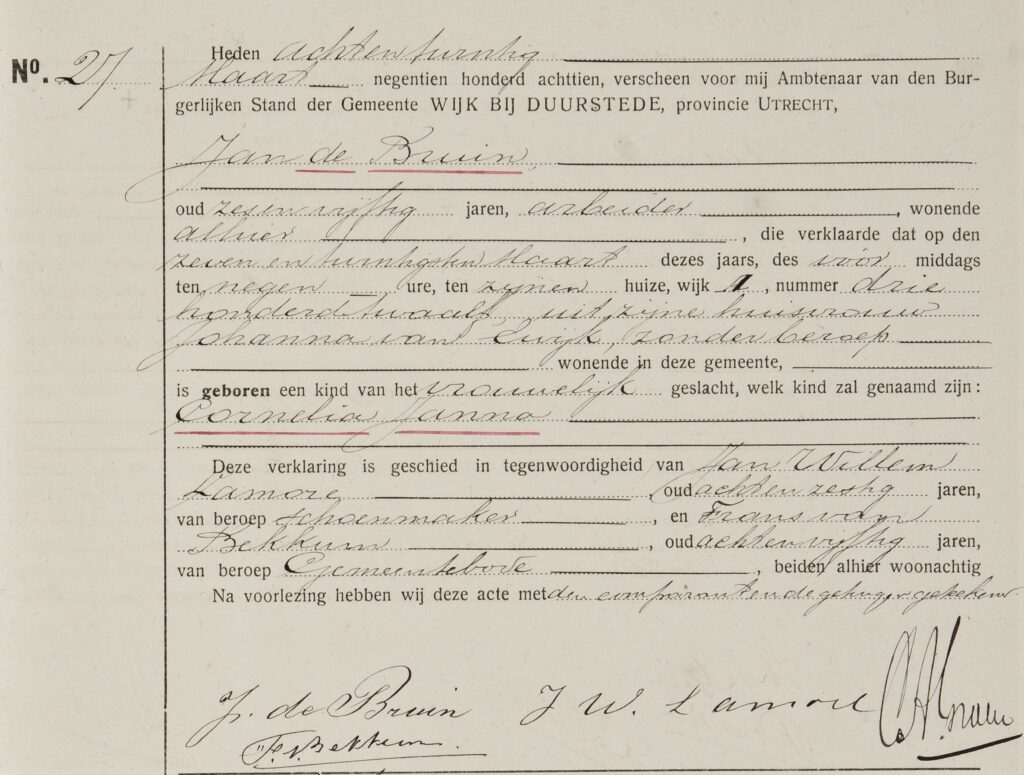 No. 27
Heden achtentwintig
Maart negentien honderd achttien, verscheen voor mij Ambtenaar van den Bur-
gerlijken Stand der Gemeente WIJK BIJ DUURSTEDE, provincie UTRECHT,
Jan de Bruin,
oud zesenvijftig jaren, arbeider, wonende
alhier, die verklaarde dat op den
zeven en twintigsten Maart dezes jaars, des vóór middags
ten negen ure, ten zijnen huize, wijk 1, nummer drie
honderd twaalf, uit zijne huisvrouw
Johanna van Ewijk, zonder beroep
wonende in deze gemeente,
is geboren een kind van het vrouwelijk geslacht, welk kind zal genaamd zijn:
Cornelia Janna
Deze verklaring is geschied in tegenwoordigheid van Jan Willem
Lamore, oud achtenzestig jaren,
van beroep schoenmaker, en Frans van
Bekkum, oud achtenvijftig jaren,
van beroep Gemeentebode, beiden alhier woonachtig
Na voorlezing hebben wij deze acte met den comparant en de getuigen geteekend.
J. de Bruin J W. Lamore
F. v. Bekkum